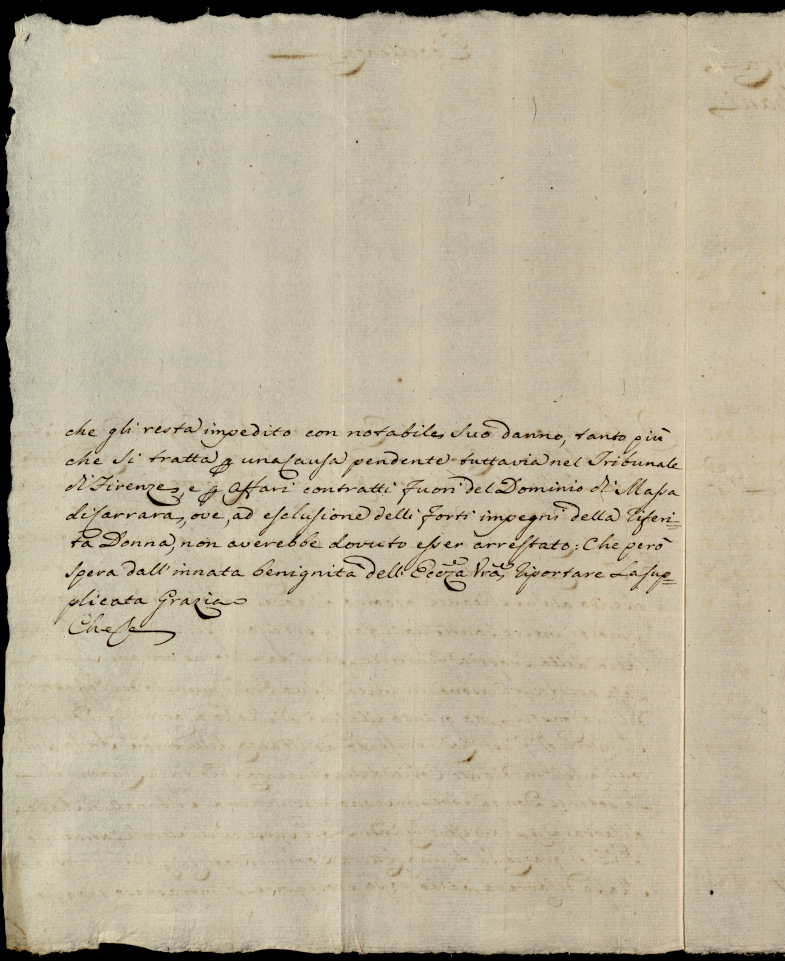 che gli resta impedito con notabile suo danno, tanto più
che si tratta p una Causa pendente tuttavia nel Tribunale
di Firenze, e p Affari contratti fuori del Dominio di Massa
di Carrara, ove, ad esclusione delli forti impegni della riferi=
ta Donna, non averebbe dovuto esser arrestato; Che però
spera dall'innata benignità dell' Eccza Vra, riportare la sup=
plicata Grazia
Che &c